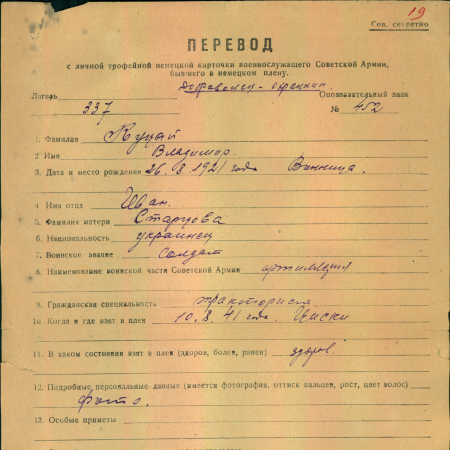 19
Сов. секретно
ПЕРЕВОД
с личной трофейной немецкой карточки военнослужащего Советской Армии,
бывшего в немецком плену.
Лагерь Опознавательный знак
337 № 452
1. Фамилия Куций
2. Имя Владимир.
3. Дата и место рождения 26.8.1921 года Винница.
4. Имя отца Иван.
5. Фамилия матери
6. Национальность украинец
7. Воинское звание солдат
8. Наименование воинской части Советской Армии артиллерия
9. Гражданская специальность тракторист
10. Когда и где взят в плен 10.8.41 года
11. В каком состоянии взят в плен (здоров, болен, ранен) здоров.
12. Подробные персональные данные (имеется фотография, оттиск пальцев, рост, цвет волос)
Фото.
13. Особые приметы